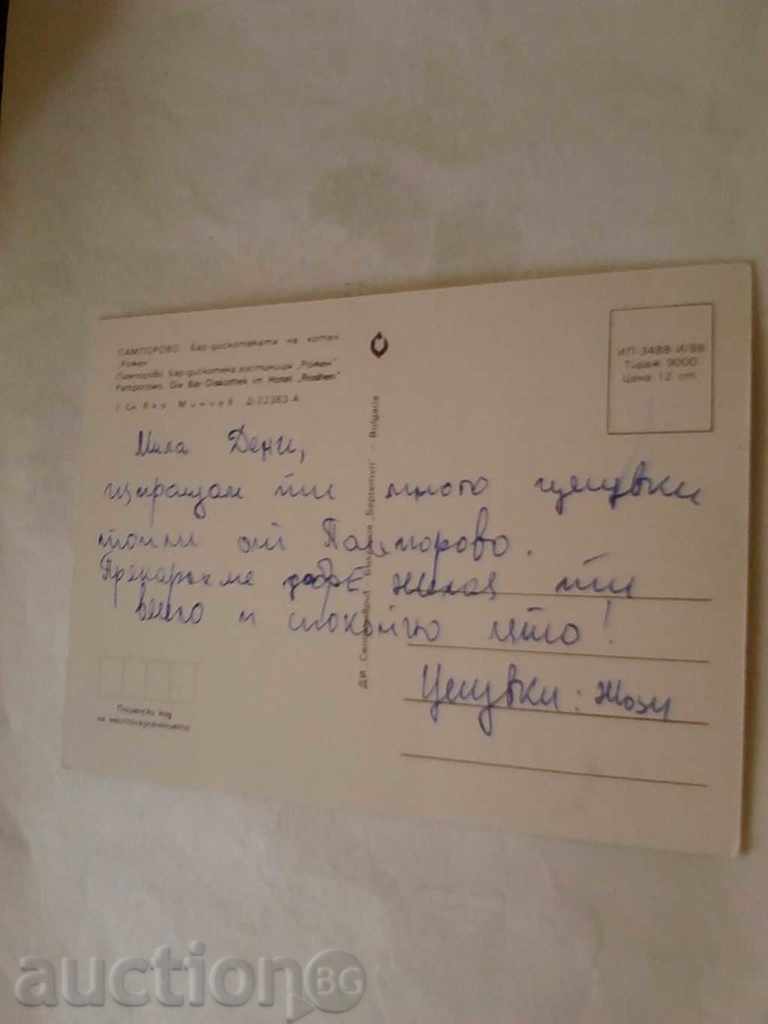 ПАМПОРОВО. Бар-дискотеката на хотел
„Рожен“
Пампорово. Бар-дискотека гостиницы „Рожен“
Pamporowo. Die Bar-Diskothek im Hotel „Roshen“
Минчев Д-12383-А
ИП-3488-И/88
Тираж 9000
Цена 12 ст.
Мила Дени,
изпращам ти много целувки
топли от Пампорово.
Прекарахме добре желая ти
весело и спокойно лято!
Целувки: Жози
Пощенски код
на местоназначението
ДИ „Септември“ Bulgaria
auctionBG